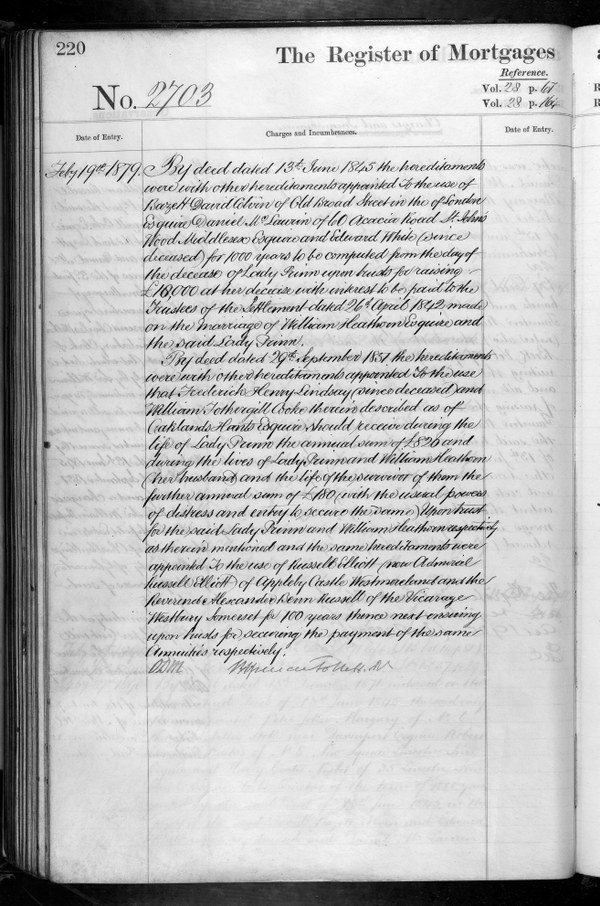 220
The Register of Mortgages
Reference.
No. 2703
Vol. 28 p. 67
Vol. 28 p. 164
Date of Entry.
Charges and Incumbrances.
Date of Entry.
Feby 19th 1879.
By deed dated 13th June 1845 the hereditaments
were with other hereditaments appointed To the use of
Bazett David Colvin of Old Broad Street in the of London
Esquire Daniel McLaurin of 60 Acacia Road St Johns
Wood Middlesex Esquire and Edward White (since
deceased) for 1000 years to be computed from the day of
the decease of Lady Prinn upon trusts for raising
£18,000 at her decease with interest to be paid to the
Trustees of the Settlement dated 26th April 1842 made
on the marriage of William Heathorn Esquire and
the said Lady Prinn.
By deed dated 29th September 1851 the hereditaments
were with other hereditaments appointed To the use
that Frederick Henry Lindsay (since deceased) and
William Fothergill Cooke therein described as of
Oaklands Hants Esquire should receive during the
life of Lady Prinn the annual sum of £826 and
during the lives of Lady Prinn and William Heathorn
(her husband) and the life of the survivor of them the
further annual sum of £180 (with the usual powers
of distress and entry to secure the same) Upon trust
for the said Lady Prinn and William Heathorn respectively
as therein mentioned and the same hereditaments were
appointed To the use of Russell Elliott (now Admiral
Russell Elliott) of Appleby Castle Westmoreland and the
Reverend Alexander Benn Russell of the Vicarage
Westbury Somerset for 100 years thence next ensuing
upon trusts for securing the payment of the same
Annuities respectively.